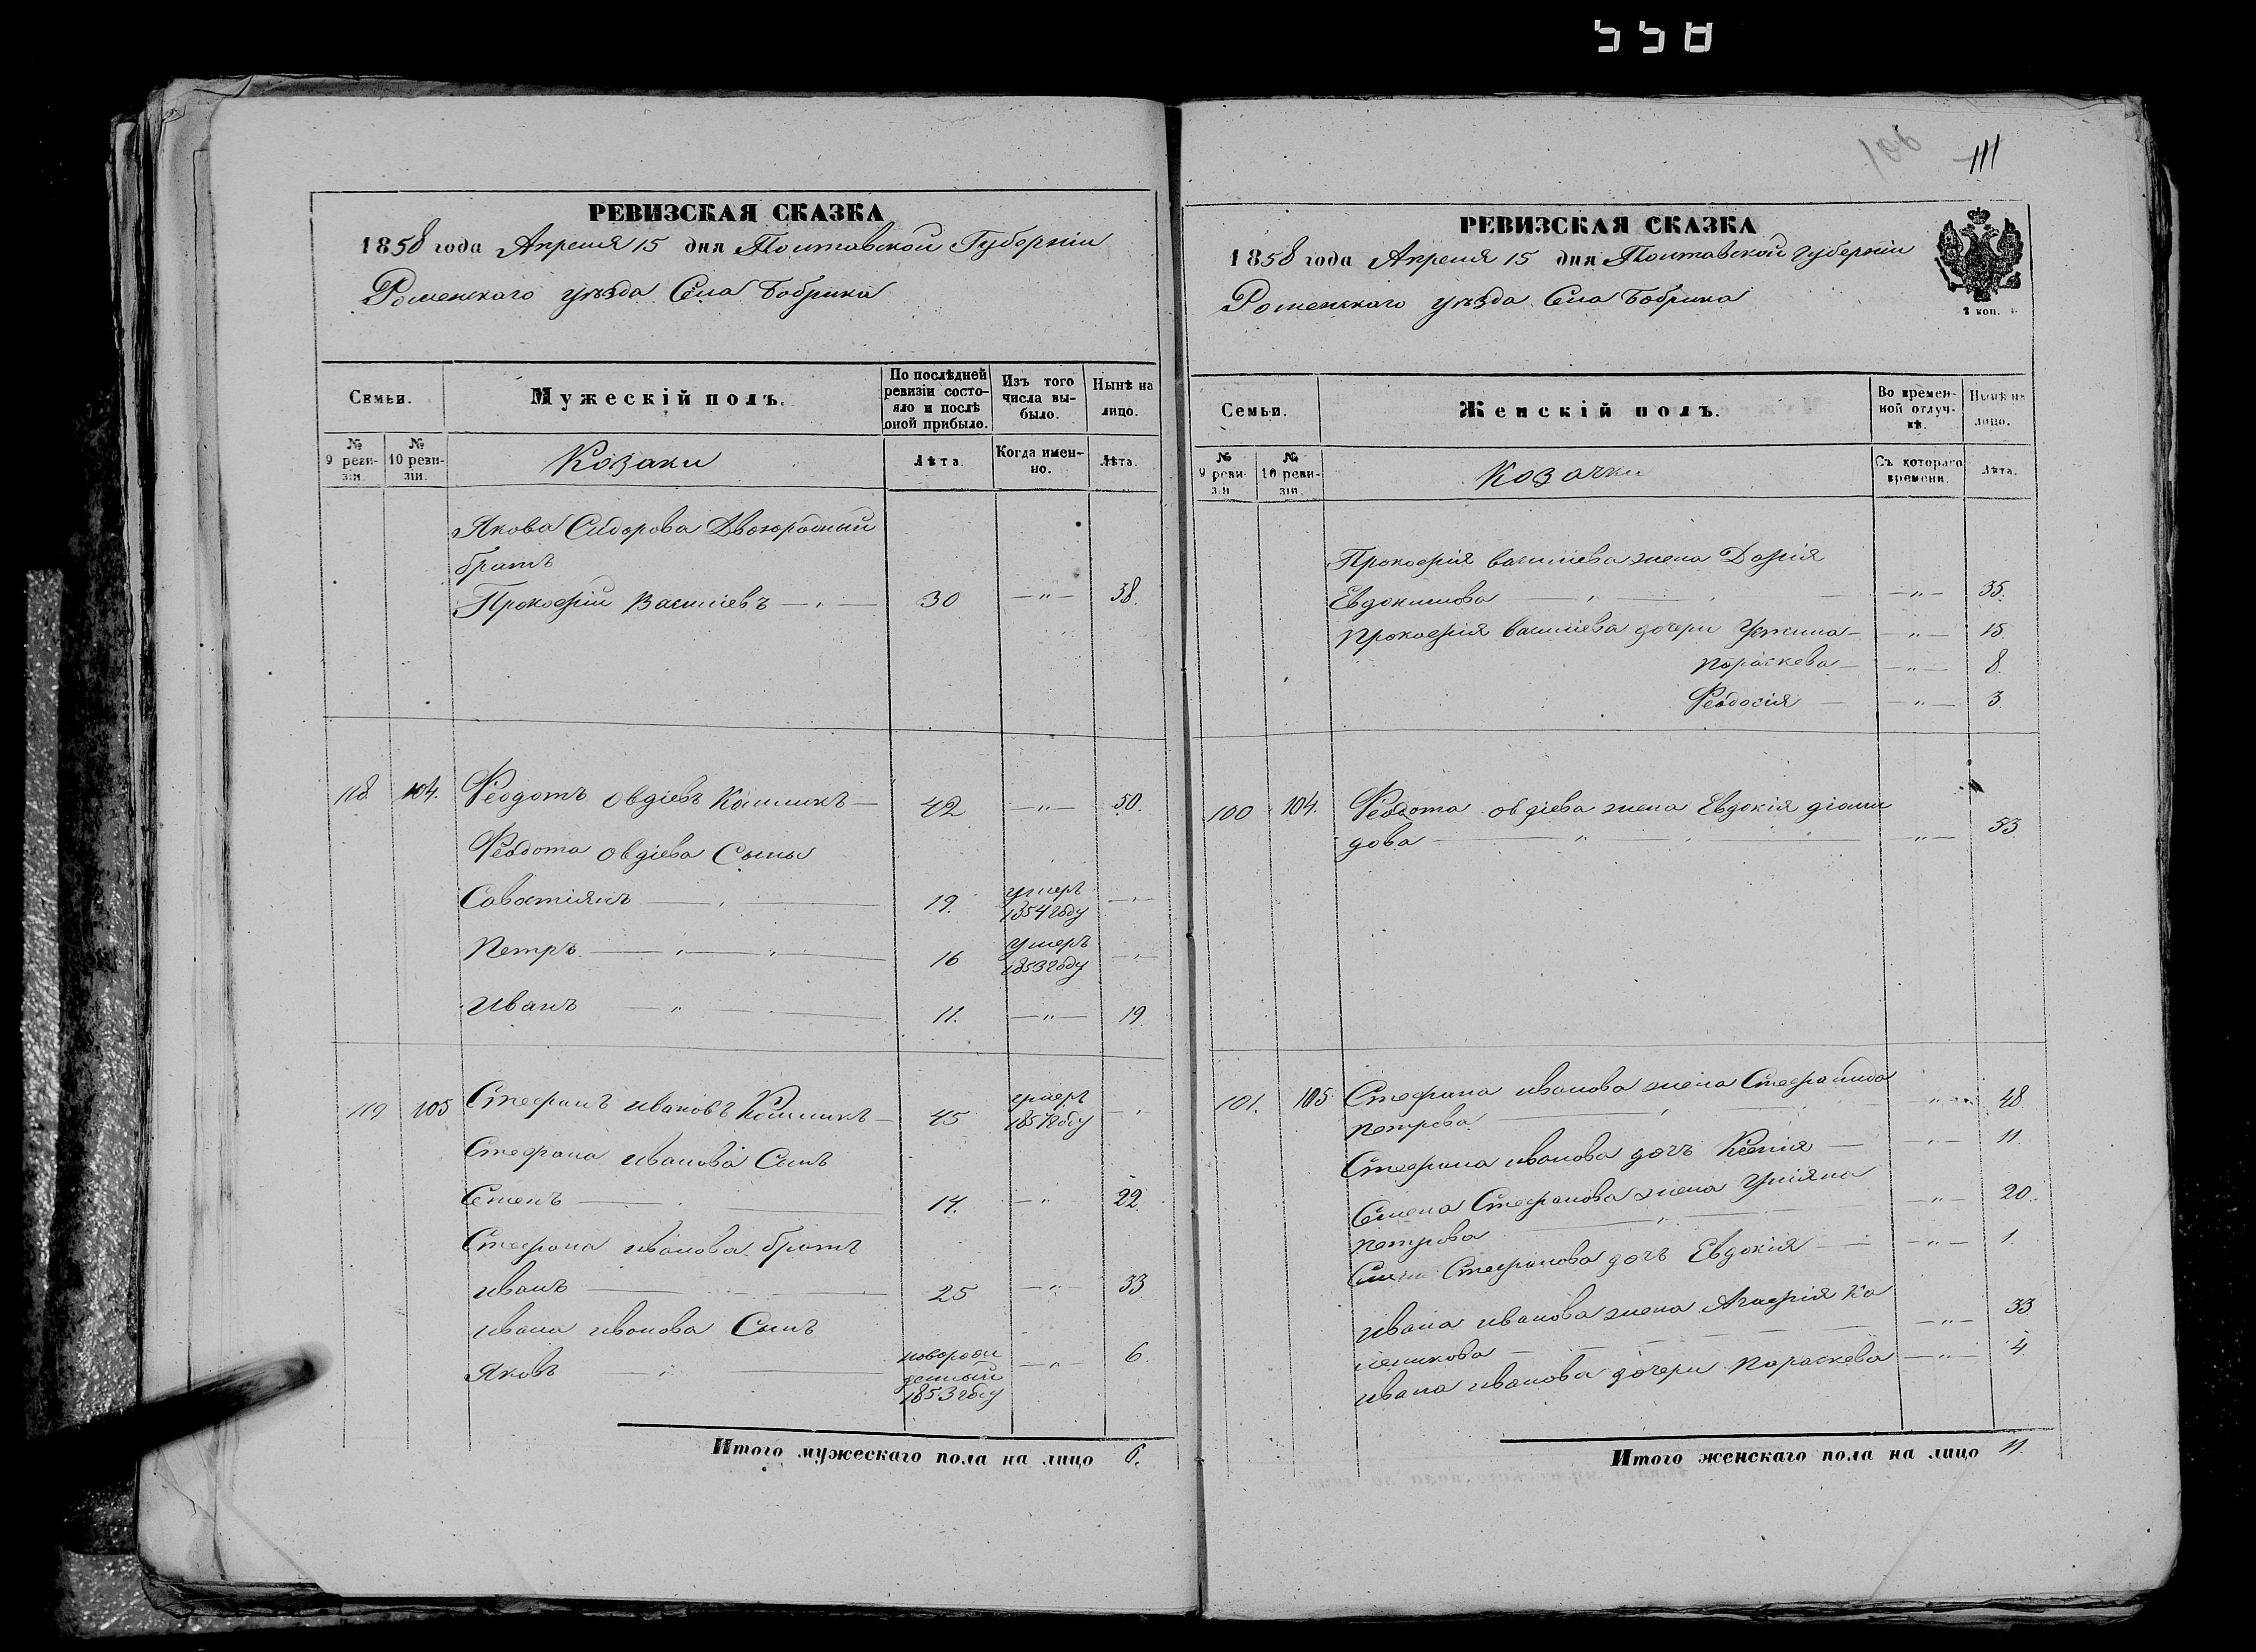 558
106
111
РЕВИЗСКАЯ СКАЗКА
1858 года Апреля 15 дня Полтавской Губерніи
Роменскаго уезда Села Бобрика
Семьи.
Мужескій полъ.
По послѣдней ревизіи состояло и послѣ оной прибыло.
Изъ того числа выбыло.
Нынѣ на лицо.
№ 9 ревизіи.
№ 10 ревизіи.
Козаки
Лѣта.
Когда именно.
Лѣта.
Якова Сидорова Двоюродный
братъ
Прокофій Василіевъ 30 38.
118. 104. Феодотъ Овдіевъ 42 50.
Феодота Овдіева Сыны
Савостіянъ 19. умеръ 1854 году
Петръ 16 умеръ 1853 году
Иванъ 11. 19
119 105 Стефанъ Ивановъ 45 умеръ 1857 году
Стефана Иванова Сынъ
Семенъ 14. 22.
Стефана Иванова братъ
Иванъ 25 33
Ивана Иванова Сынъ
Яковъ новорожденный 1853 году 6.
Итого мужескаго пола на лицо 6.
РЕВИЗСКАЯ СКАЗКА
1858 года Апреля 15 дня Полтавской Губерніи
Роменскаго уезда Села Бобрика
2 коп.
Семьи.
Женскій полъ.
Во временной отлучкѣ.
Нынѣ на лицо.
№ 9 ревизіи
№ 10 ревизіи.
Козачки
Съ котораго времени.
Лѣта.
Прокофія Василіева жена
Евдокимова 35.
Прокофія Василіева дочери Устина 15.
Параскева 8.
Феодосія 3.
100 104. Феодота Овдіева жена Евдокія Діоми
дова 53.
101. 105. Стефана Иванова жена Стефанида
Петрова 48
Стефана Иванова дочъ Ксенія 11.
Семена Стефанова жена Уліяна
Петрова 20.
Стефанова дочъ Евдокія 1.
Ивана Иванова жена Агафія Ка
леникова 33
Ивана Иванова дочери Параскева 4.
Итого женскаго пола на лицо 11.